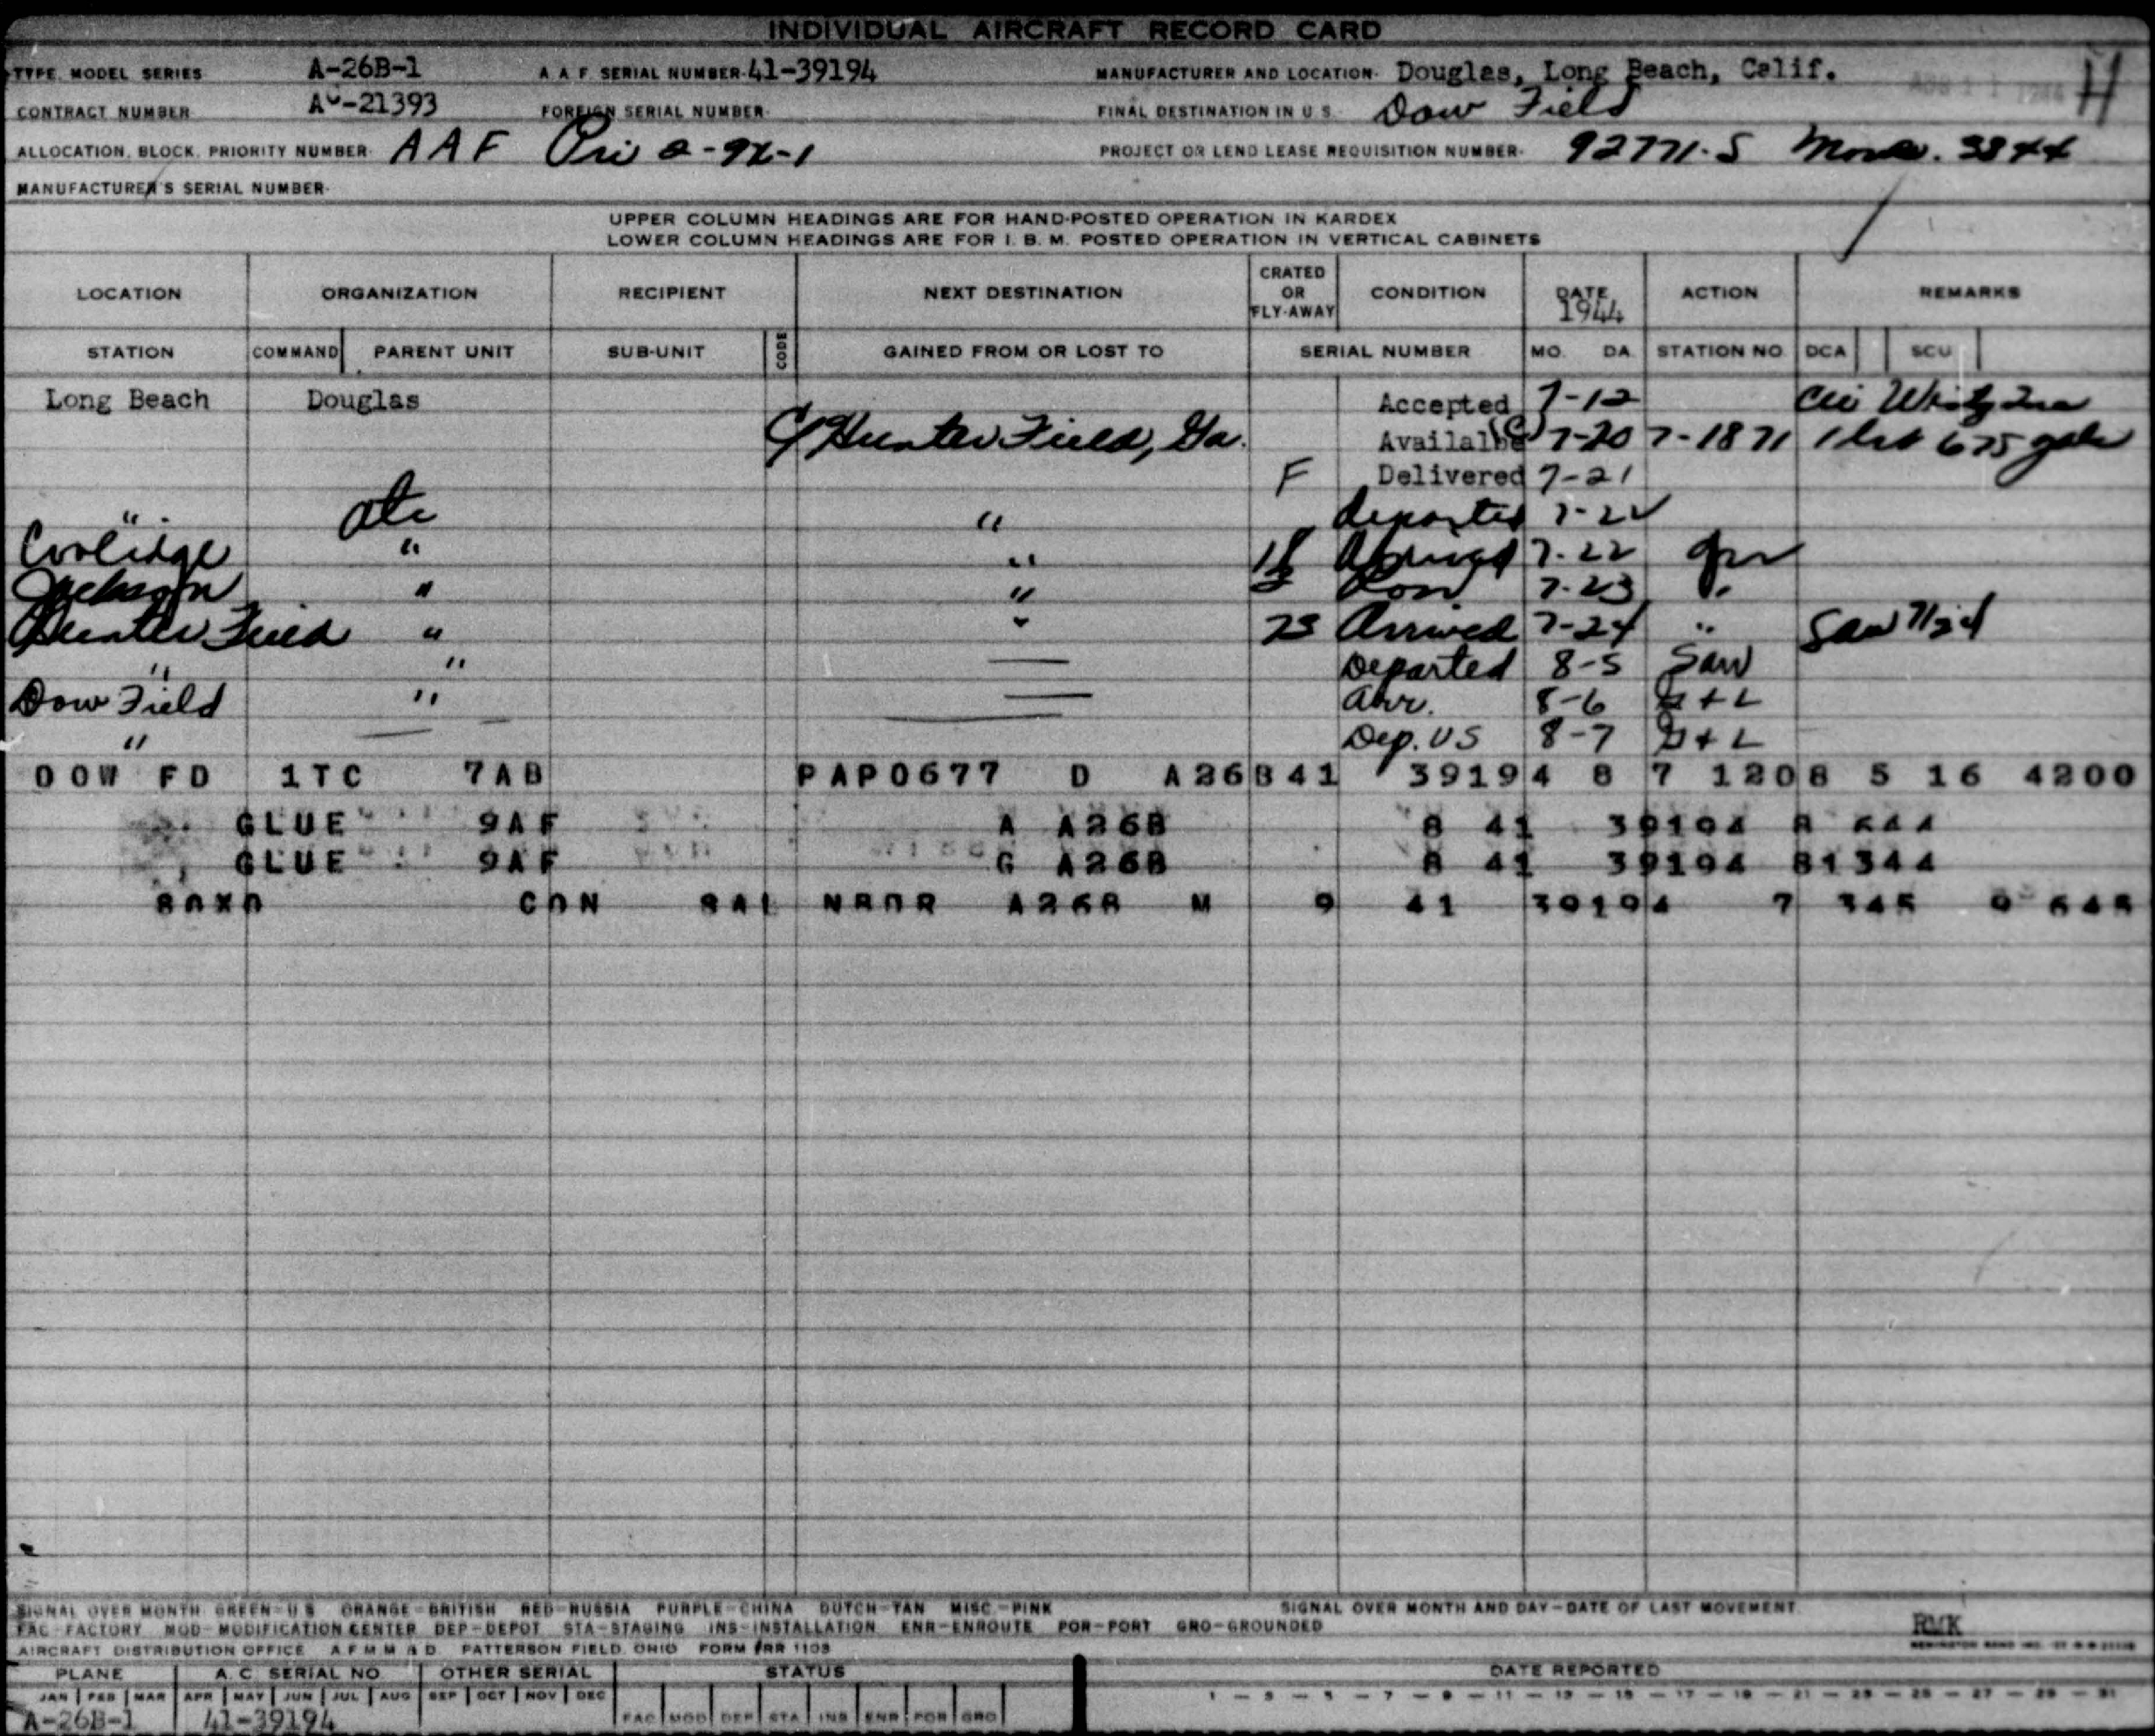 INDIVIDUAL AIRCRAFT RECORD CARD
TYPE, MODEL SERIES A-26B-1 A A F SERIAL NUMBER- 41-39194 MANUFACTURER AND LOCATION- Douglas, Long Beach, Calif. H
CONTRACT NUMBER -21393 FOREIGN SERIAL NUMBER- FINAL DESTINATION IN U S. Dow Field
ALLOCATION, BLOCK, PRIORITY NUMBER- AAF Pri PROJECT OR LEND LEASE REQUISITION NUMBER- 92771-S
MANUFACTURER'S SERIAL NUMBER-
UPPER COLUMN HEADINGS ARE FOR HAND-POSTED OPERATION IN KARDEX
LOWER COLUMN HEADINGS ARE FOR I. B. M. POSTED OPERATION IN VERTICAL CABINETS
LOCATION ORGANIZATION RECIPIENT NEXT DESTINATION CRATED OR FLY-AWAY CONDITION DATE 1944 ACTION REMARKS
STATION COMMAND PARENT UNIT SUB-UNIT CODE GAINED FROM OR LOST TO SERIAL NUMBER MO. DA. STATION NO DCA SCU
Long Beach Douglas Accepted 7-12
Hunter Field, Ga. 7-20 7-1871 675
F Delivered 7-21
" atc " departed 7-22
Coolidge " " 7-22
Jackson " " 7-23 "
Hunter Field " " 23 Arrived 7-24 " Saw 7/24
" " — Departed 8-5 Saw
Dow Field " — Arr. 8-6
" — — Dep. US 8-7
DOW FD 1TC 7AB PAP0677 D A26B41 39194 8 7 1208 5 16 4200
GLUE 9AF A A26B 8 41 39194 8 644
GLUE 9AF G A26B 8 41 39194 81344
CON SAL A26B M 9 41 39194 7 345
SIGNAL OVER MONTH GREEN-U S ORANGE-BRITISH RED-RUSSIA PURPLE-CHINA DUTCH-TAN MISC.-PINK SIGNAL OVER MONTH AND DAY-DATE OF LAST MOVEMENT.
FAC-FACTORY MOD-MODIFICATION CENTER DEP-DEPOT STA-STAGING INS-INSTALLATION ENR-ENROUTE POR-PORT GRO-GROUNDED
AIRCRAFT DISTRIBUTION OFFICE PATTERSON FIELD, OHIO FORM
PLANE A. C. SERIAL NO OTHER SERIAL STATUS DATE REPORTED
JAN FEB MAR APR MAY JUN JUL AUG SEP OCT NOV DEC FAC MOD DEP STA INS ENR POR GRO 1 - 3 - 5 - 7 - 9 - 11 - 13 - 15 - 17 - 19 - 21 - 23 - 25 - 27 - 29 - 31
A-26B-1 41-39194